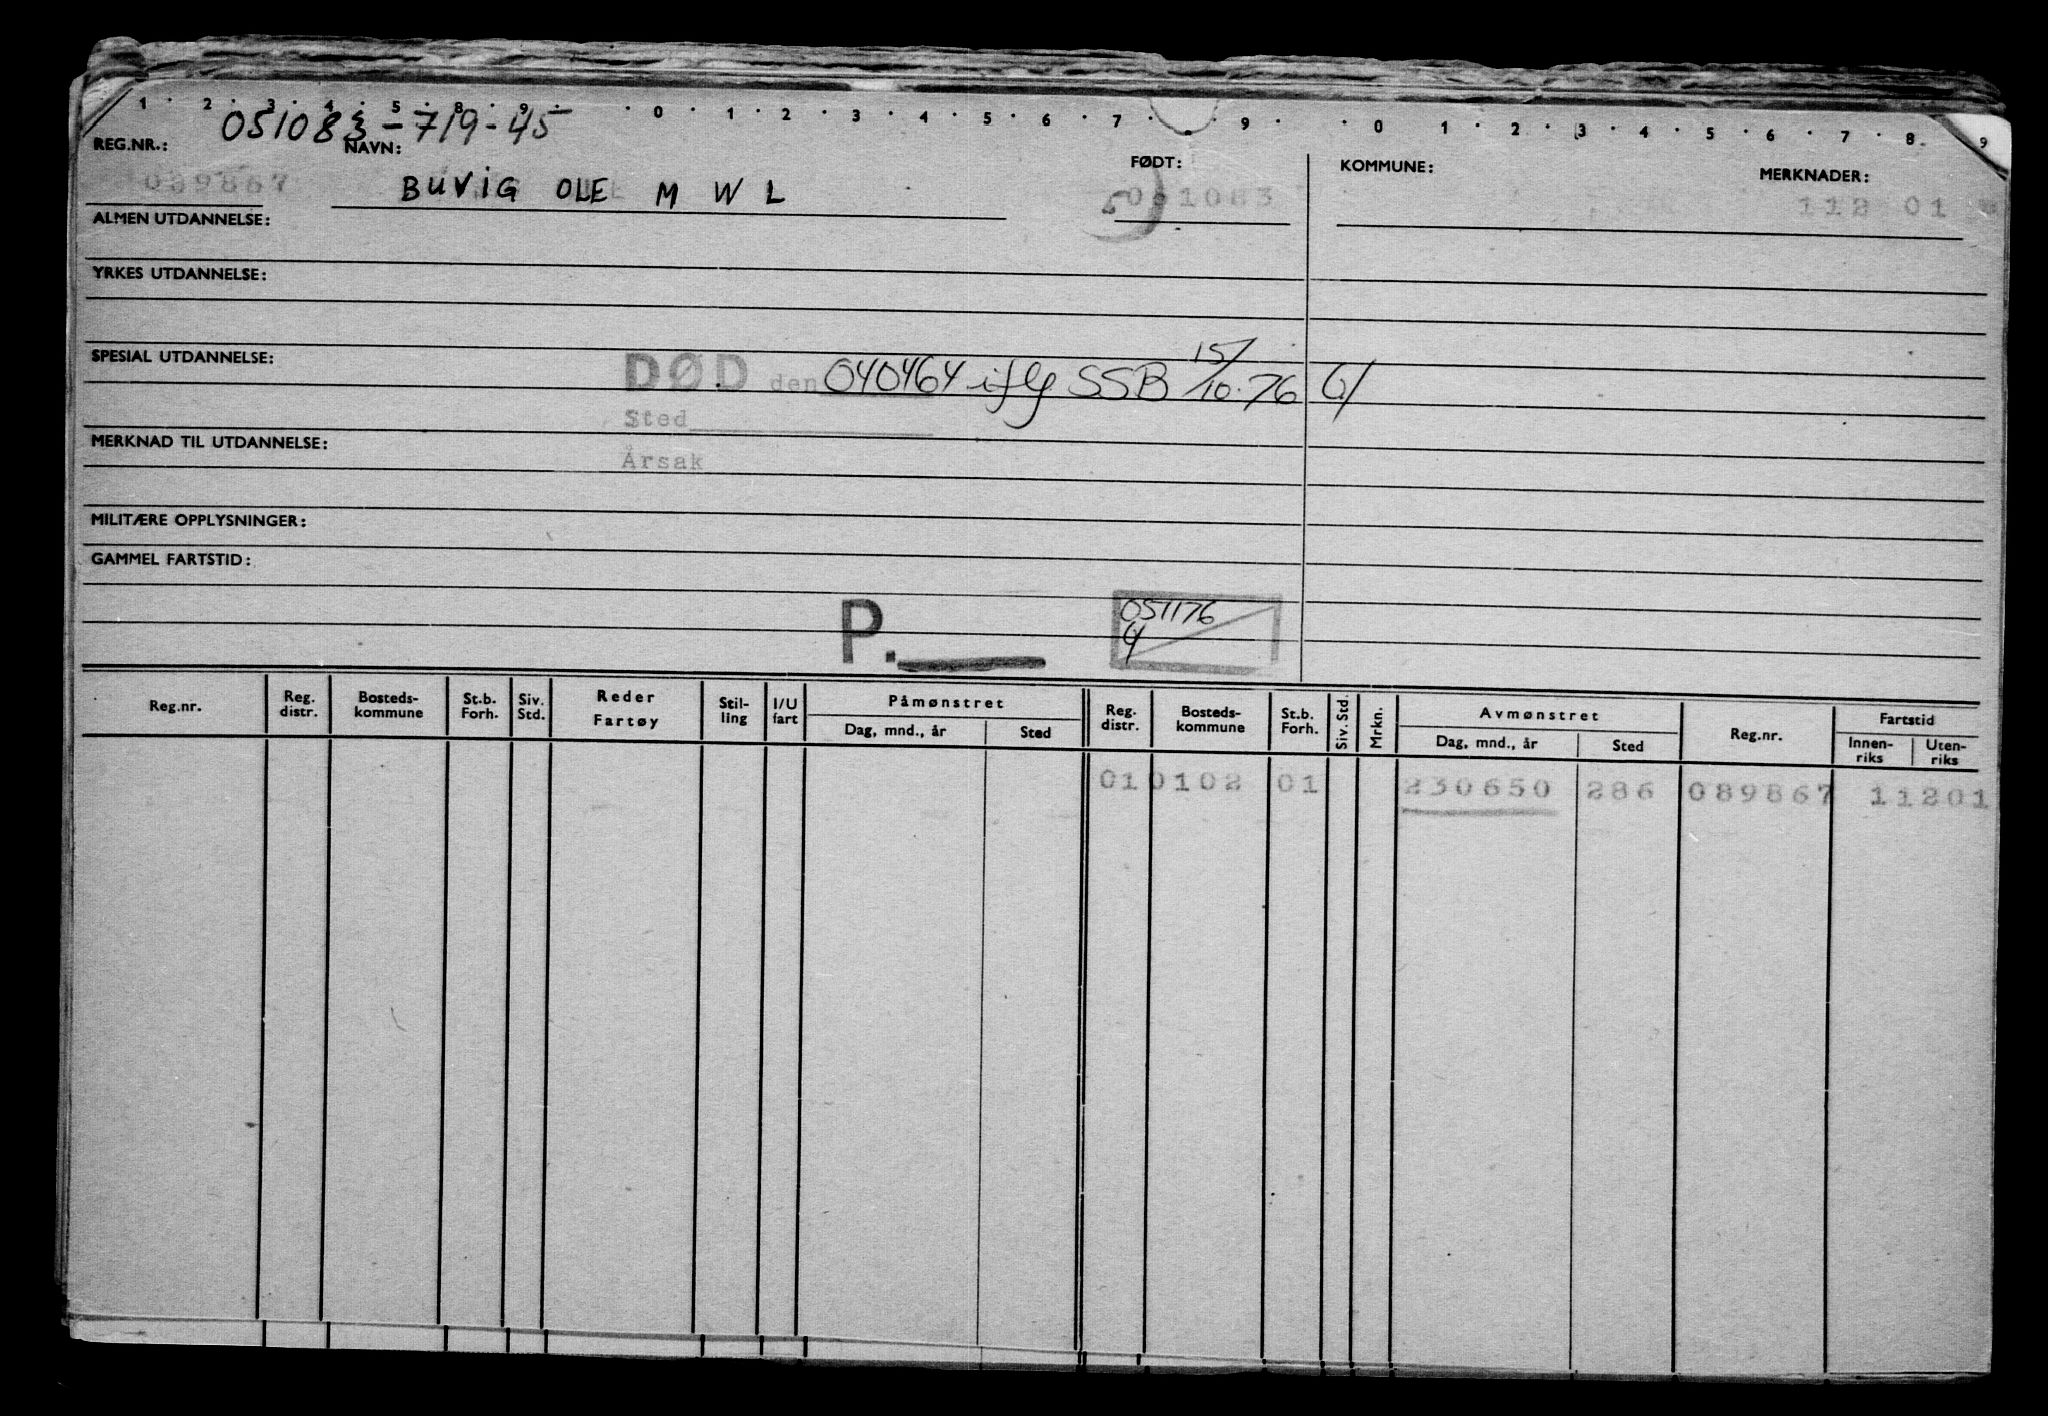 1 . 2 . 3 . 4 . 5 . 8 . 9 . . 0 . 1 . 2 . 3 . 4 . 5 . 6 . 7 . . 9 . . 0 . 1 . 2 . 3 . 4 . 5 . 6 . 7 . 8 . 9
051083-719-45
REG.NR.: NAVN: FØDT: KOMMUNE: MERKNADER:
089867 BUVIG OLE M W L 5) 1083 112 01
ALMEN UTDANNELSE:
YRKES UTDANNELSE:
SPESIAL UTDANNELSE:
DØD den 040464 iflg SSB 15/10-76
Sted
MERKNAD TIL UTDANNELSE:
Årsak
MILITÆRE OPPLYSNINGER:
GAMMEL FARTSTID:
P. 051176
Reg.nr. Reg. distr. Bosteds-kommune St.b. Forh. Siv. Std. Reder Fartøy Stil-ling I/U fart Påmønstret Reg. distr. Bosteds-kommune St.b. Forh. Siv. Std. Mrkn. Avmønstret Reg.nr. Fartstid
Dag, mnd., år Sted Dag, mnd., år Sted Innen-riks Uten-riks
01 0102 01 230650 286 089867 11201